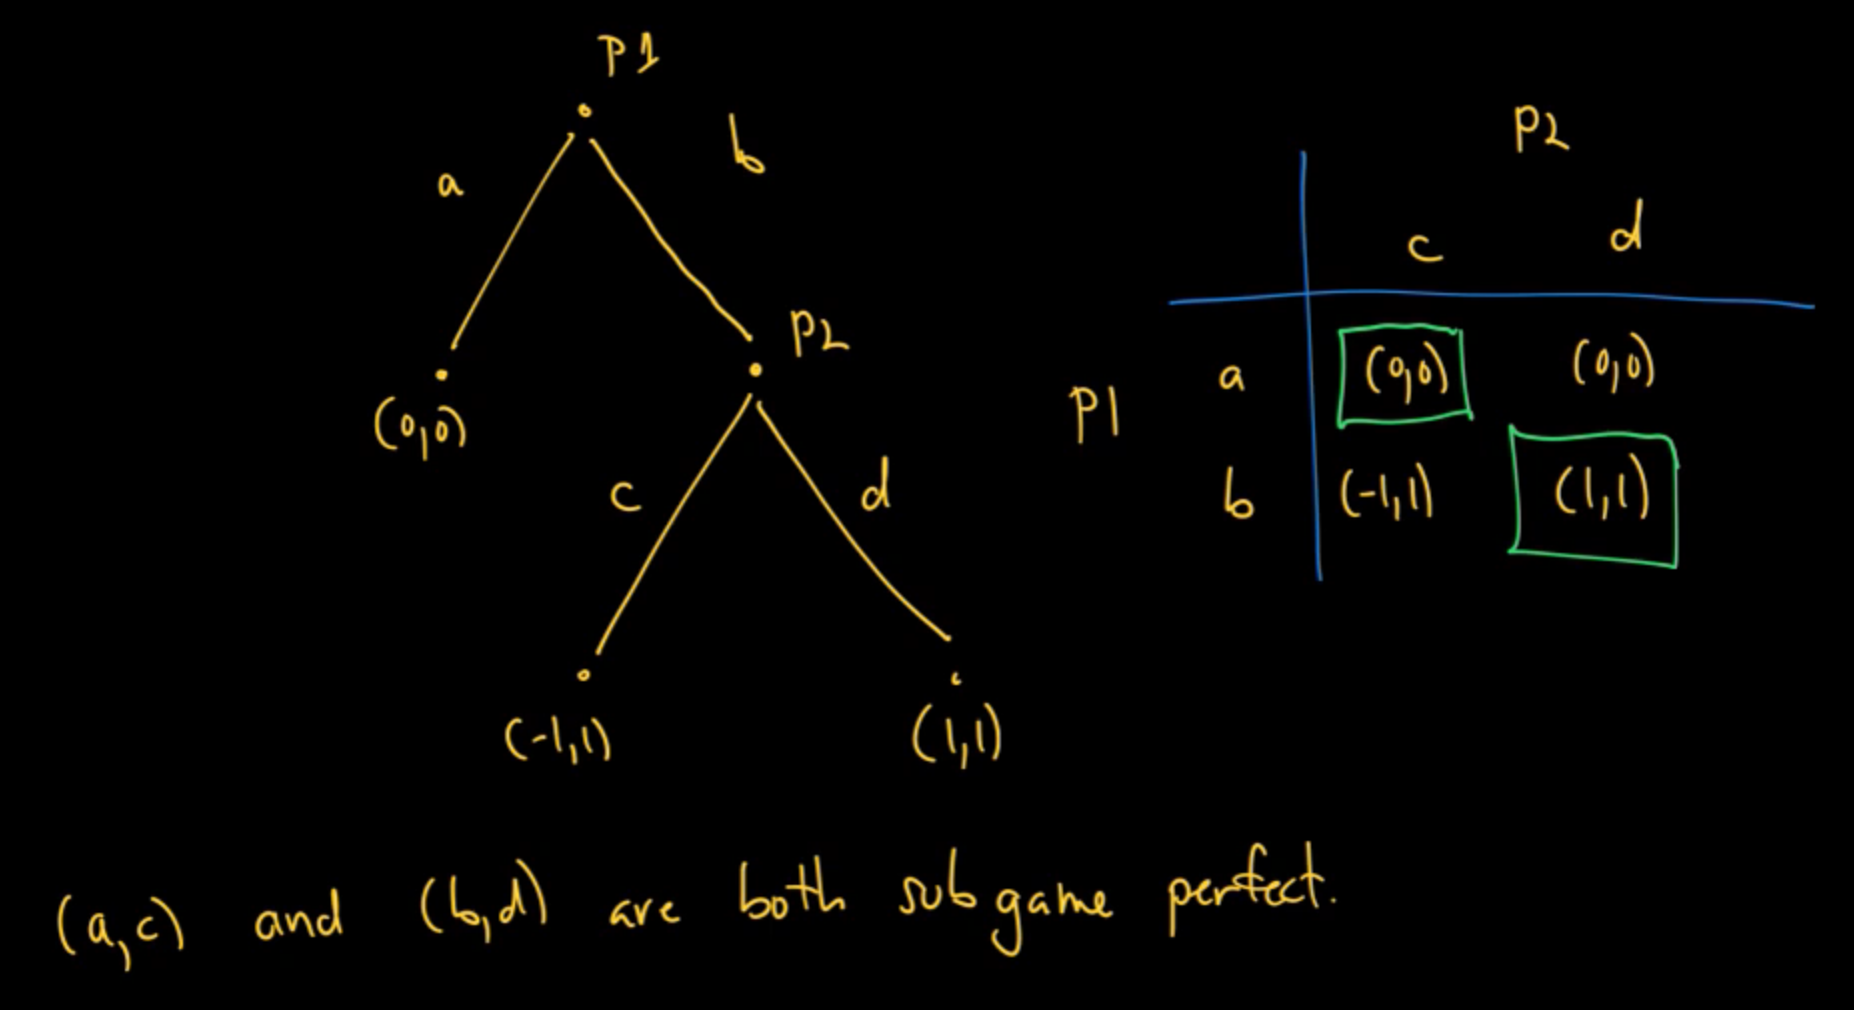 P1
a b
(0,0)
P2
c d
(-1,1) (1,1)
P2
c d
P1
a (0,0) (0,0)
b (-1,1) (1,1)
(a,c) and (b,d) are both subgame perfect.